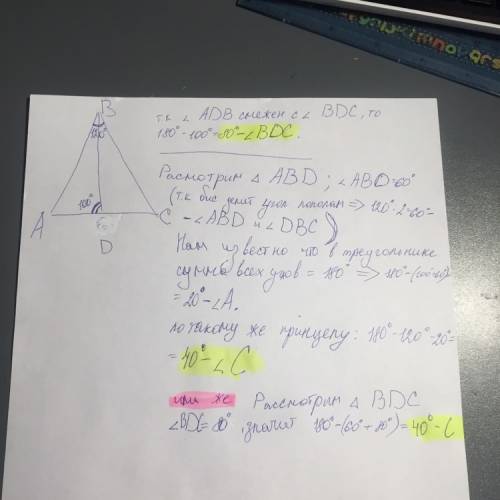 B
120°
100°
80°
A
C
D
т.к ∠ ADB смежен с ∠ BDC, то
180°-100°=80°-∠BDC.
Расмотрим △ ABD; ∠ABD=60°
(т.к бис. делит угол пополам ⇒ 120°:2=60°-
-∠ABD и ∠DBC)
Нам известно что в треугольнике
сумма всех углов = 180° ⇒ 180°-(100°+60°)
=20°-∠A.
по такому же принцепу: 180°-120°-20°=
=40°-∠C
или же Рассмотрим △ BDC
∠BDC=80°, значит 180°-(60°+80°)=40°-C